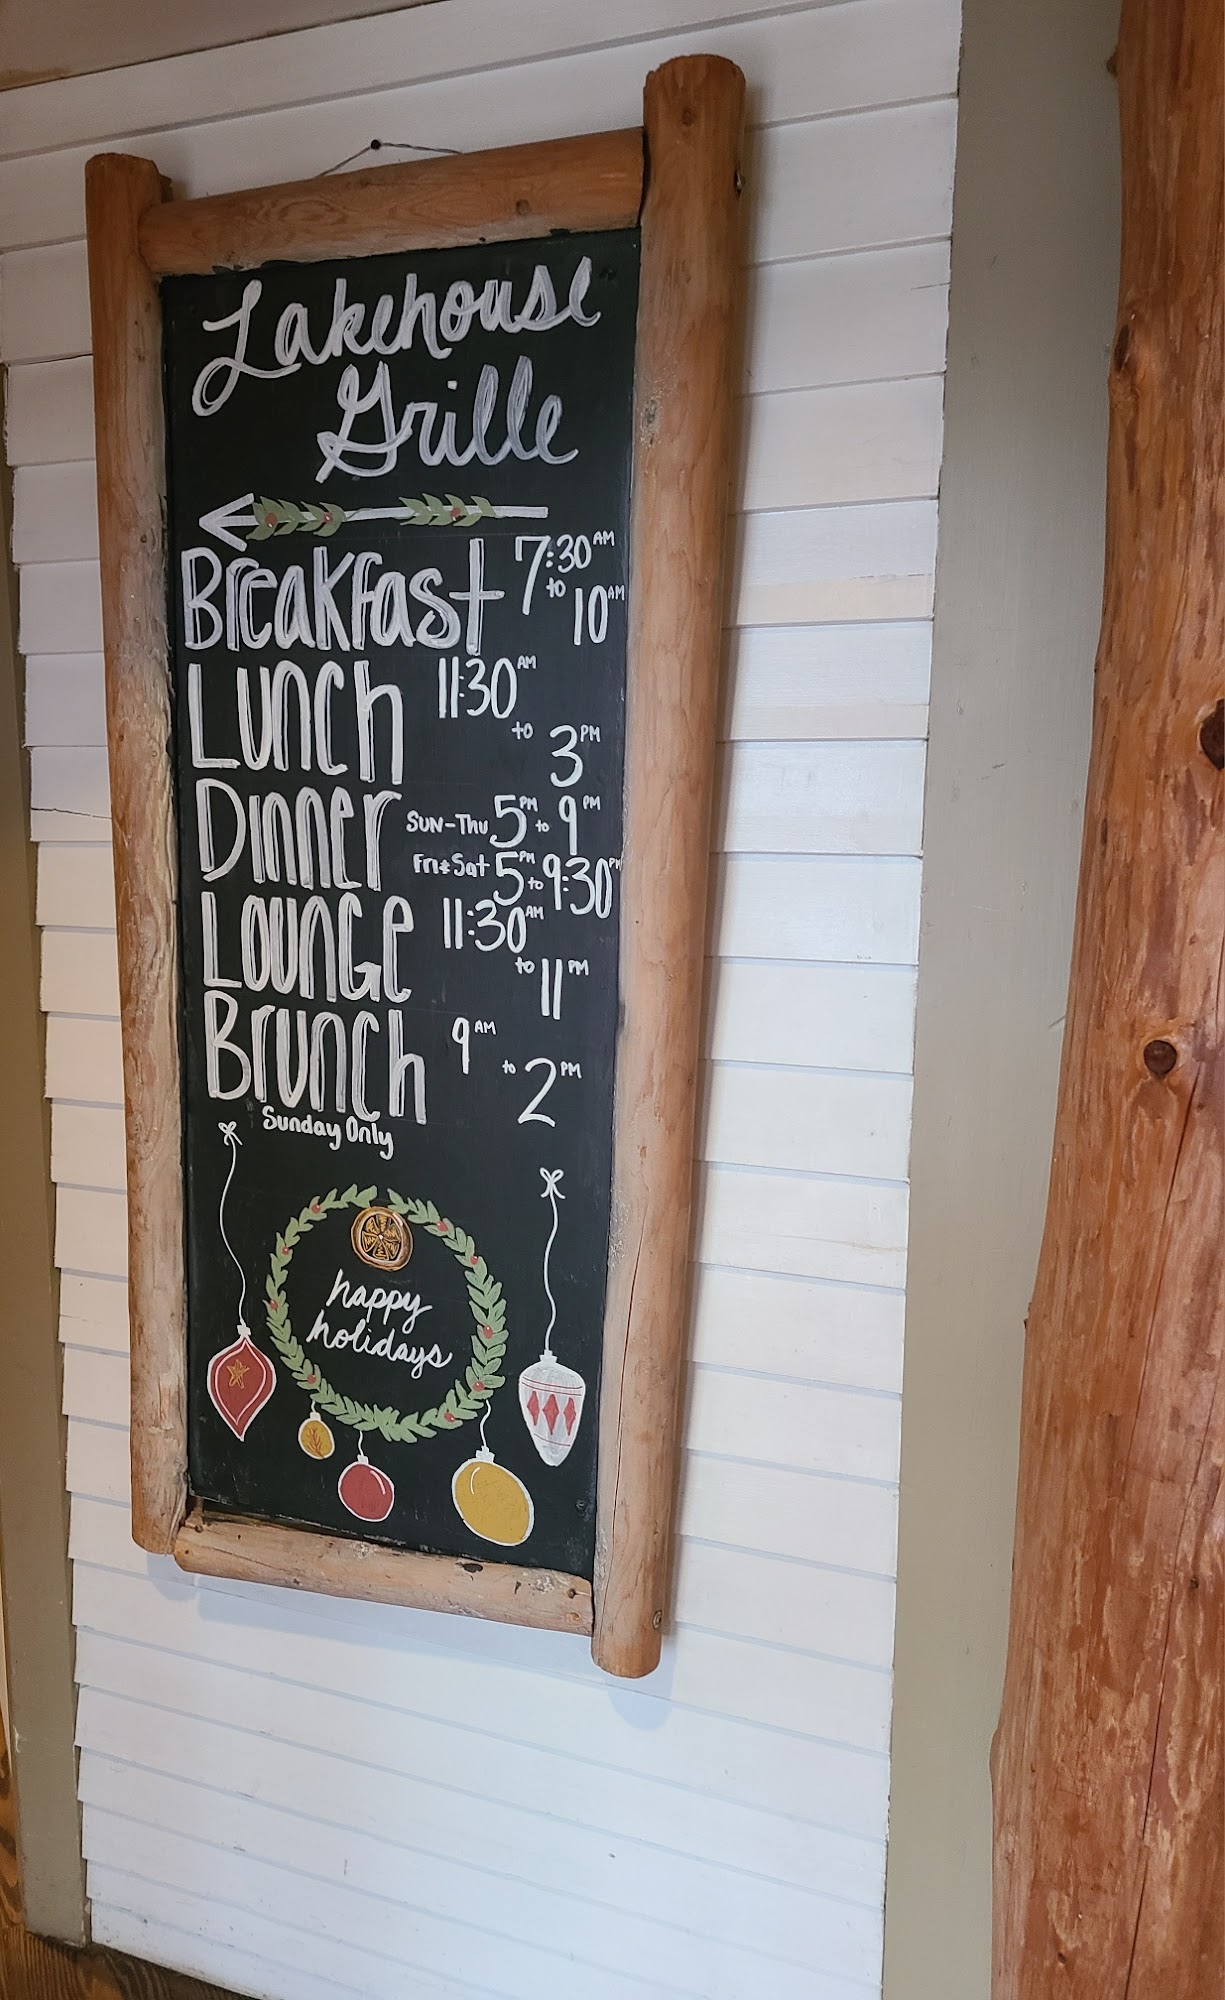 Lakehouse
Grille
Breakfast 7:30 AM to 10 AM
Lunch 11:30 AM to 3 PM
Dinner Sun-Thu 5 PM to 9 PM
Fri & Sat 5 PM to 9:30 PM
Lounge 11:30 AM to 11 PM
Brunch 9 AM to 2 PM
Sunday Only
happy
holidays